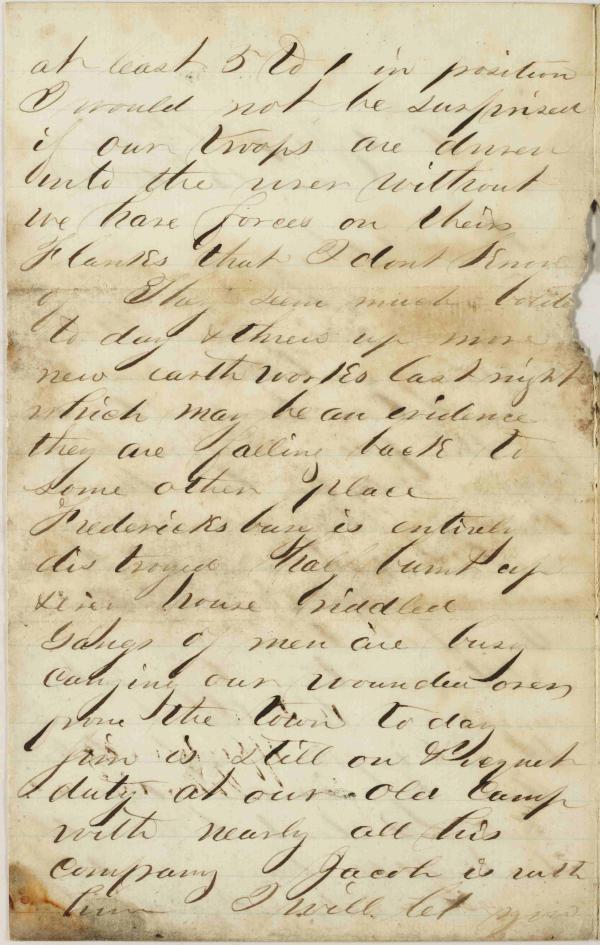 at least 5 to 1 in position
I would not be surprised
if our troops are driven
into the river without
we have forces on their
Flanks that I dont Know
of They seem much bold
to day & threw up more
new earth works last night
which may be an evidence
they are falling back to
some other place
Fredericksburg is entirely
distroyed half burnt up
& every house riddled
Gangs of men are busy
carrying our wounded over
from the town to day
Jim is still on Picquet
duty at our old Camp
with nearly all his
company Jacob is with
him I will let you